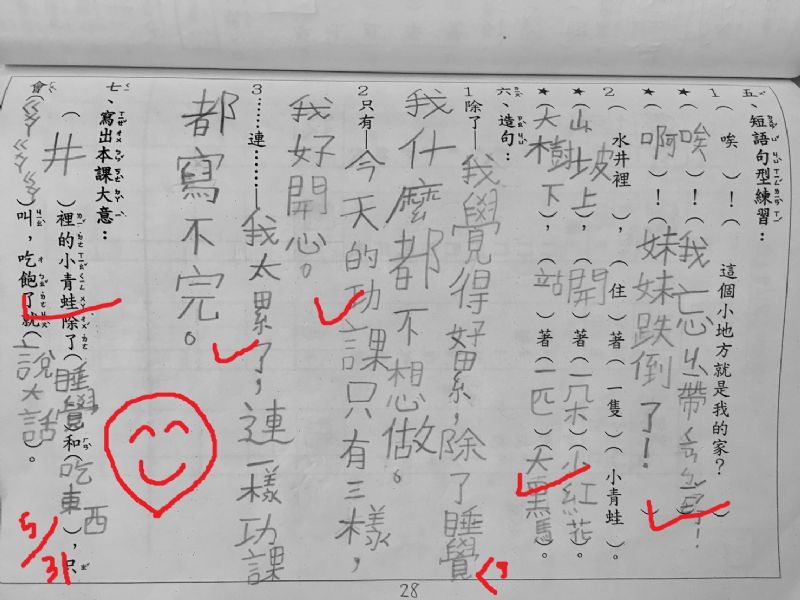 五、短語句型練習：
1（唉）！（這個小地方就是我的家？）
★（唉）！（我忘ㄉㄞˋ帶
★（啊）！（妹妹跌倒了！）
2（水井裡），（住）著（一隻）（小青蛙）。
★（山坡上），（開）著（一朵）（小紅花）。
★（大樹下），（站）著（一匹）（大黑馬）。
六、造句：
1除了—我覺得好累，除了睡覺
我什麼都不想做。
2只有—今天的功課只有三樣，
我好開心。
3……連……—我太累了，連一樣功課
都寫不完。
七、寫出本課大意：
（井）裡的小青蛙除了（睡覺）和（吃東西），只
會（ㄍㄚ ㄍㄚ ㄍㄚ）叫，吃飽了就（說大話）。
5/31
28